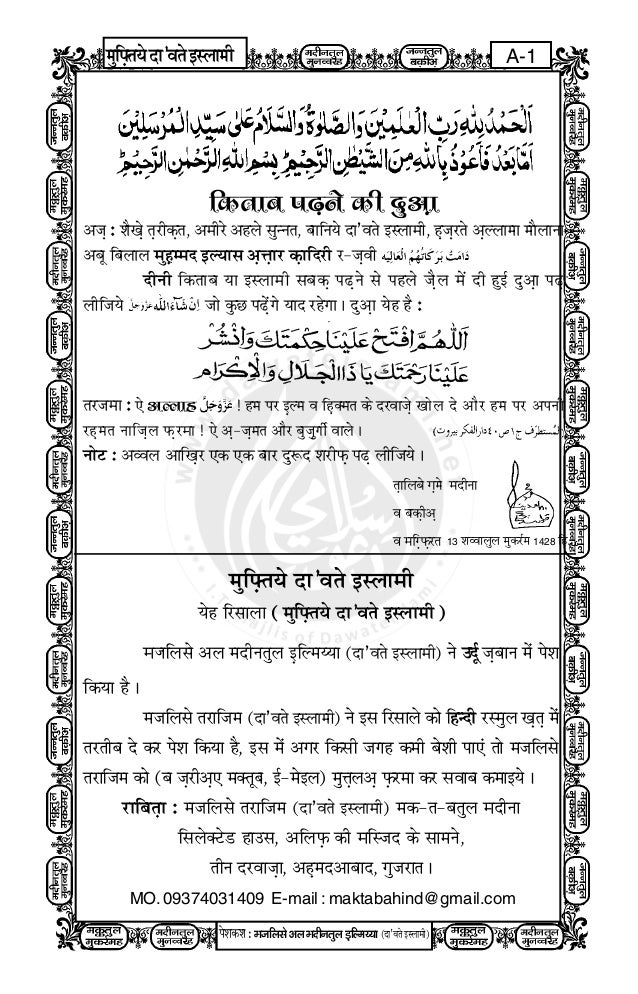 मुफ़्तिये दा'वते इस्लामी
मदीनतुल मुनव्वरह
जन्नतुल बक़ीअ़
A-1
اَلْحَمْدُ لِلّٰهِ رَبِّ الْعٰلَمِيْنَ وَالصَّلٰوةُ وَالسَّلَامُ عَلٰى سَيِّدِ الْمُرْسَلِيْنَ
اَمَّا بَعْدُ فَاَعُوْذُ بِاللّٰهِ مِنَ الشَّيْطٰنِ الرَّجِيْمِ بِسْمِ اللّٰهِ الرَّحْمٰنِ الرَّحِيْمِ
किताब पढ़ने की दुआ़
अज़ : शैख़े त़रीक़त, अमीरे अहले सुन्नत, बानिये दा'वते इस्लामी, ह़ज़रते अ़ल्लामा मौलाना
अबू बिलाल मुह़म्मद इल्यास अ़त्त़ार क़ादिरी र-ज़वी دَامَتْ بَرَكَاتُهُمُ الْعَالِيَه
दीनी किताब या इस्लामी सबक़ पढ़ने से पहले जै़ल में दी हुई दुआ़ पढ़
लीजिये اِنْ شَآءَ اللّٰه عَزَّوَجَلَّ जो कुछ पढ़ेंगे याद रहेगा । दुआ़ येह है :
اَللّٰهُمَّ افْتَحْ عَلَيْنَا حِكْمَتَكَ وَانْشُرْ
عَلَيْنَا رَحْمَتَكَ يَا ذَا الْجَلَالِ وَالْاِكْرَام
तरजमा : ऐ अल्लाह عَزَّوَجَلَّ ! हम पर इ़ल्म व ह़िक्मत के दरवाजे़ खोल दे और हम पर अपनी
रह़मत नाज़िल फ़रमा ! ऐ अ़-ज़मत और बुज़ुर्गी वाले । (المُستطرَف ج١ ص٤٠ دارالفكر بيروت)
नोट : अव्वल आख़िर एक एक बार दुरूद शरीफ़ पढ़ लीजिये ।
त़ालिबे ग़मे मदीना
व बक़ीअ़
व मग़्फ़िरत 13 शव्वालुल मुकर्रम 1428
मुफ़्तिये दा'वते इस्लामी
येह रिसाला ( मुफ़्तिये दा'वते इस्लामी )
मजलिसे अल मदीनतुल इ़ल्मिय्या (दा'वते इस्लामी) ने उर्दू ज़बान में पेश
किया है ।
मजलिसे तराजिम (दा'वते इस्लामी) ने इस रिसाले को हिन्दी रस्मुल ख़त़ में
तरतीब दे कर पेश किया है, इस में अगर किसी जगह कमी बेशी पाएं तो मजलिसे
तराजिम को (ब ज़रीअ़ए मक्तूब, ई-मेइल) मुत्त़लअ़ फ़रमा कर सवाब कमाइये ।
राबित़ा : मजलिसे तराजिम (दा'वते इस्लामी) मक-त-बतुल मदीना
सिलेक्टेड हाउस, अलिफ़ की मस्जिद के सामने,
तीन दरवाज़ा, अह़मदआबाद, गुजरात ।
MO. 09374031409 E-mail : maktabahind@gmail.com
मक्कतुल मुकर्रमह
मदीनतुल मुनव्वरह
पेशकश : मजलिसे अल मदीनतुल इ़ल्मिय्या (दा'वते इस्लामी)
मक्कतुल मुकर्रमह
मदीनतुल मुनव्वरह